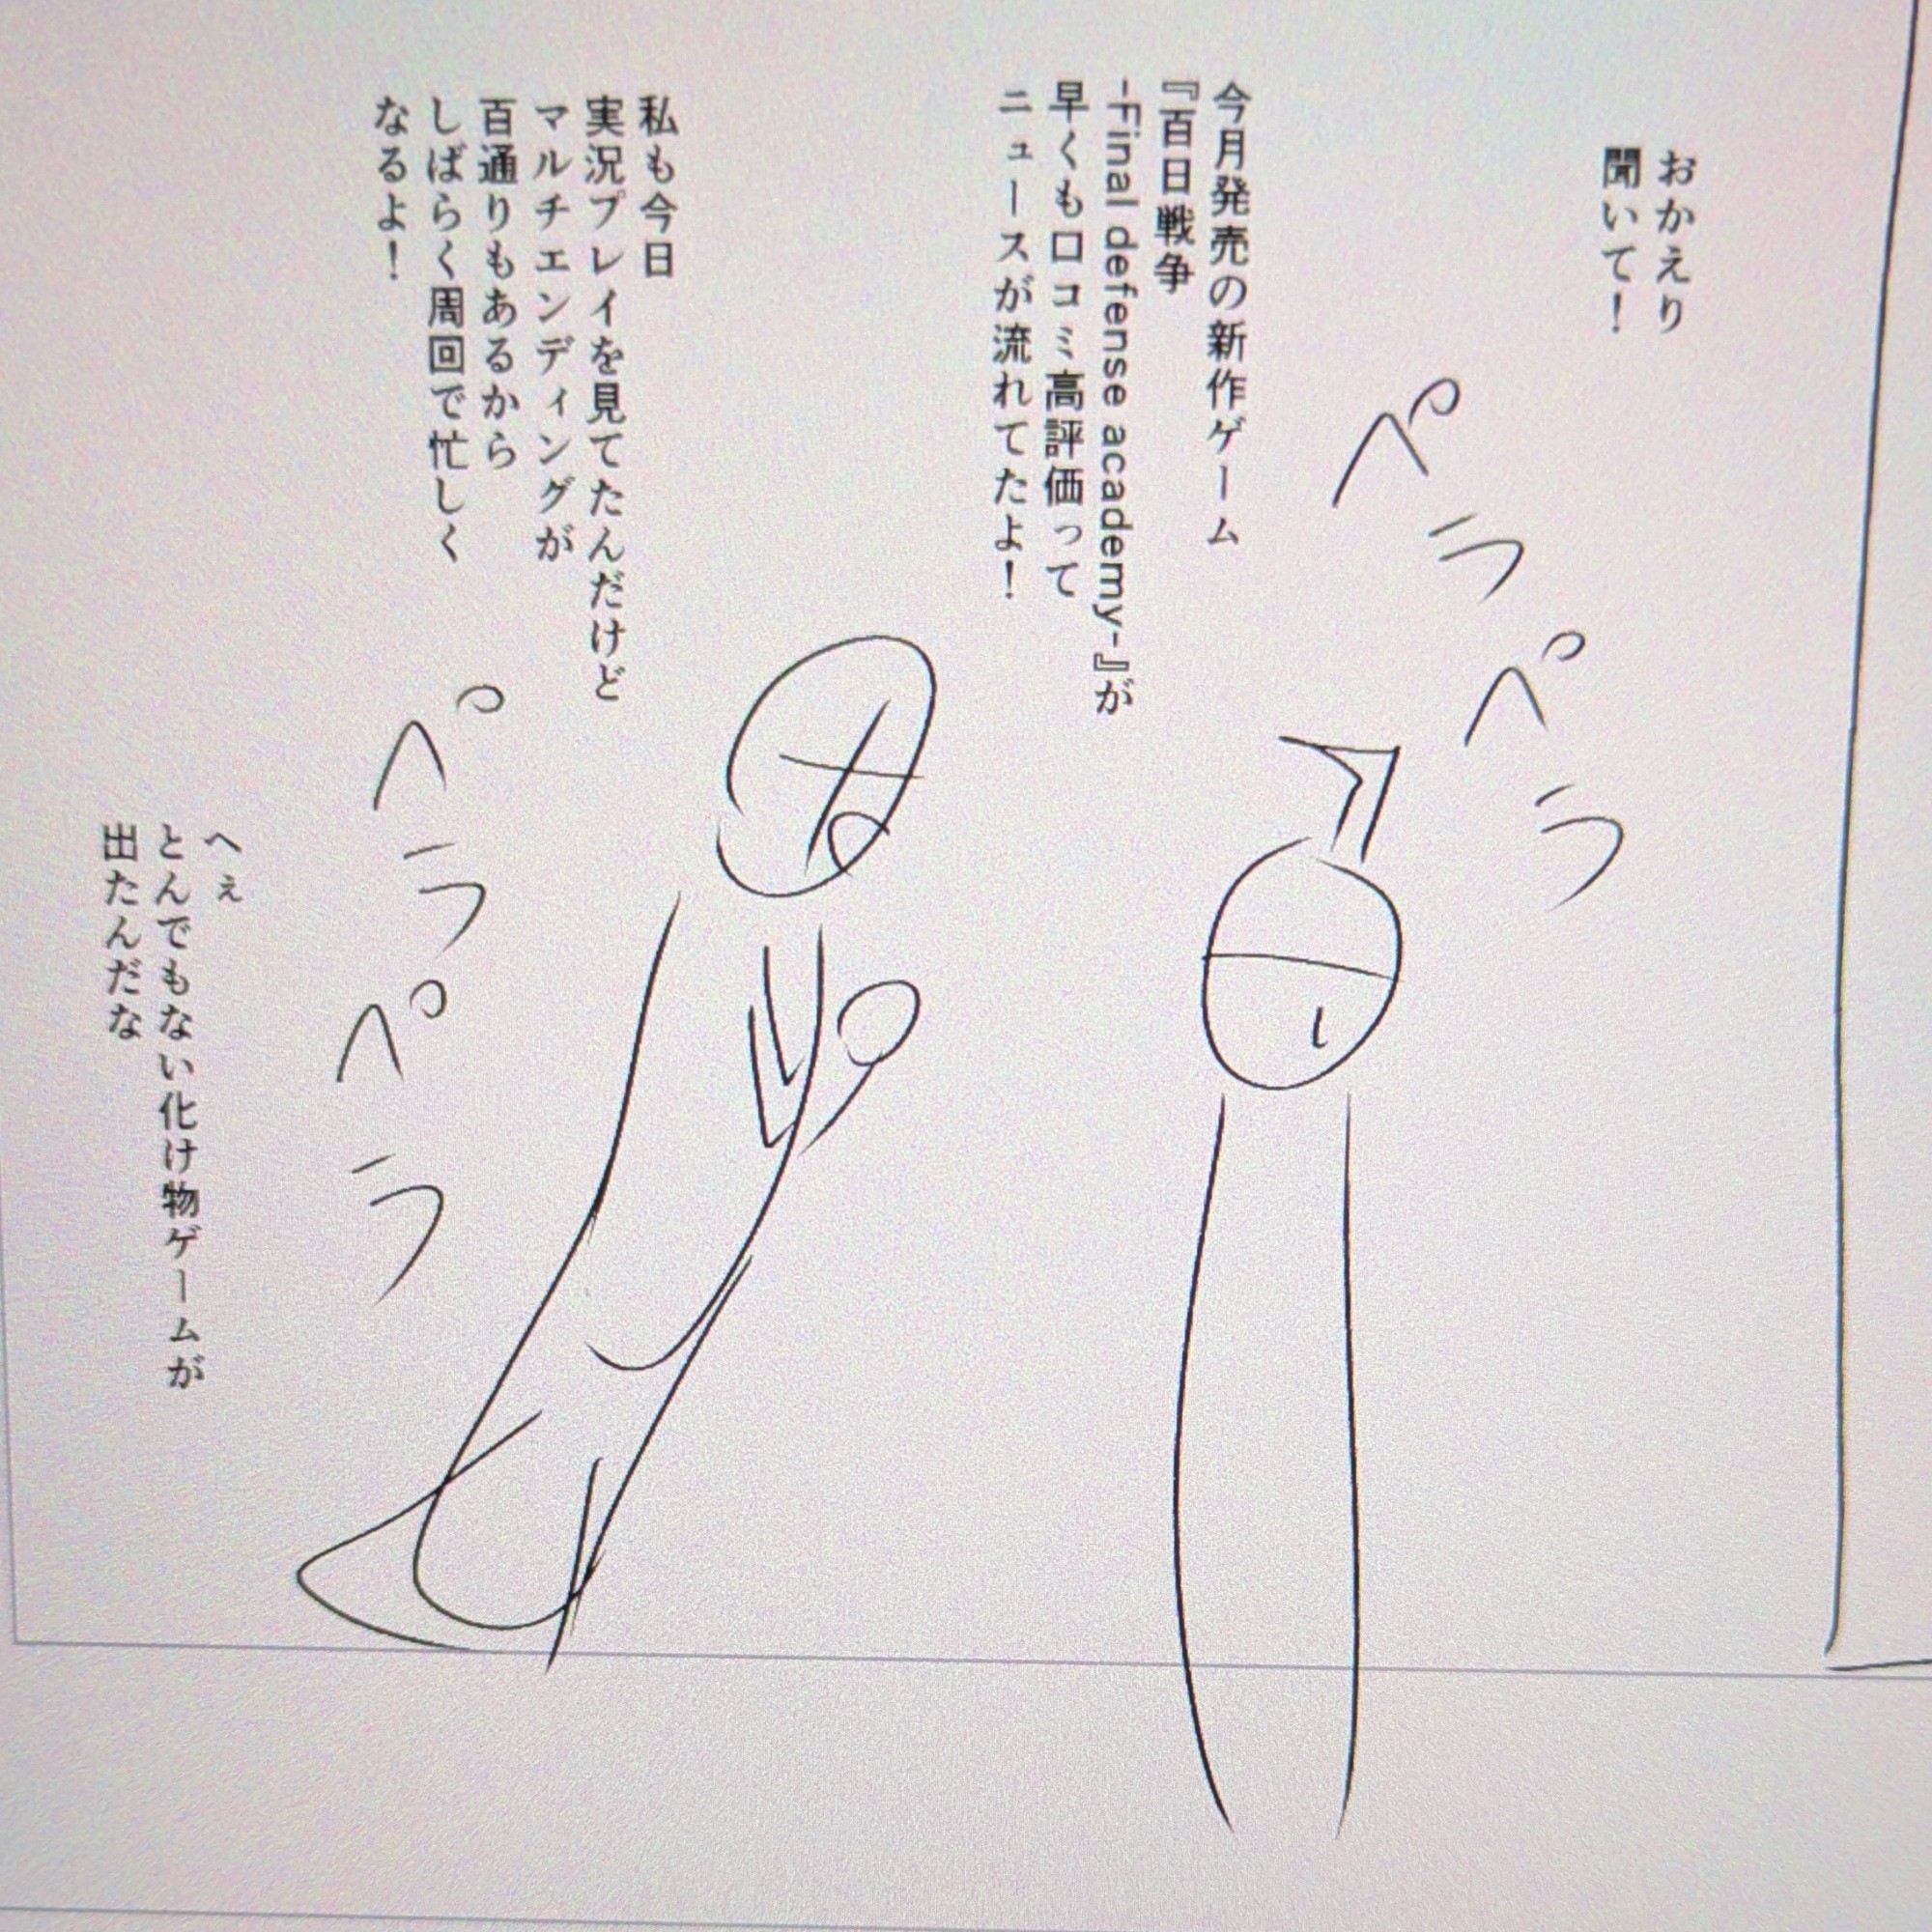 おかえり
聞いて！
ペラペラ
今月発売の新作ゲーム
『百日戦争
-Final defense academy-』が
早くも口コミ高評価って
ニュースが流れてたよ！
私も今日
実況プレイを見てたんだけど
マルチエンディングが
百通りもあるから
しばらく周回で忙しく
なるよ！
ペラペラ
へぇ
とんでもない化け物ゲームが
出たんだな